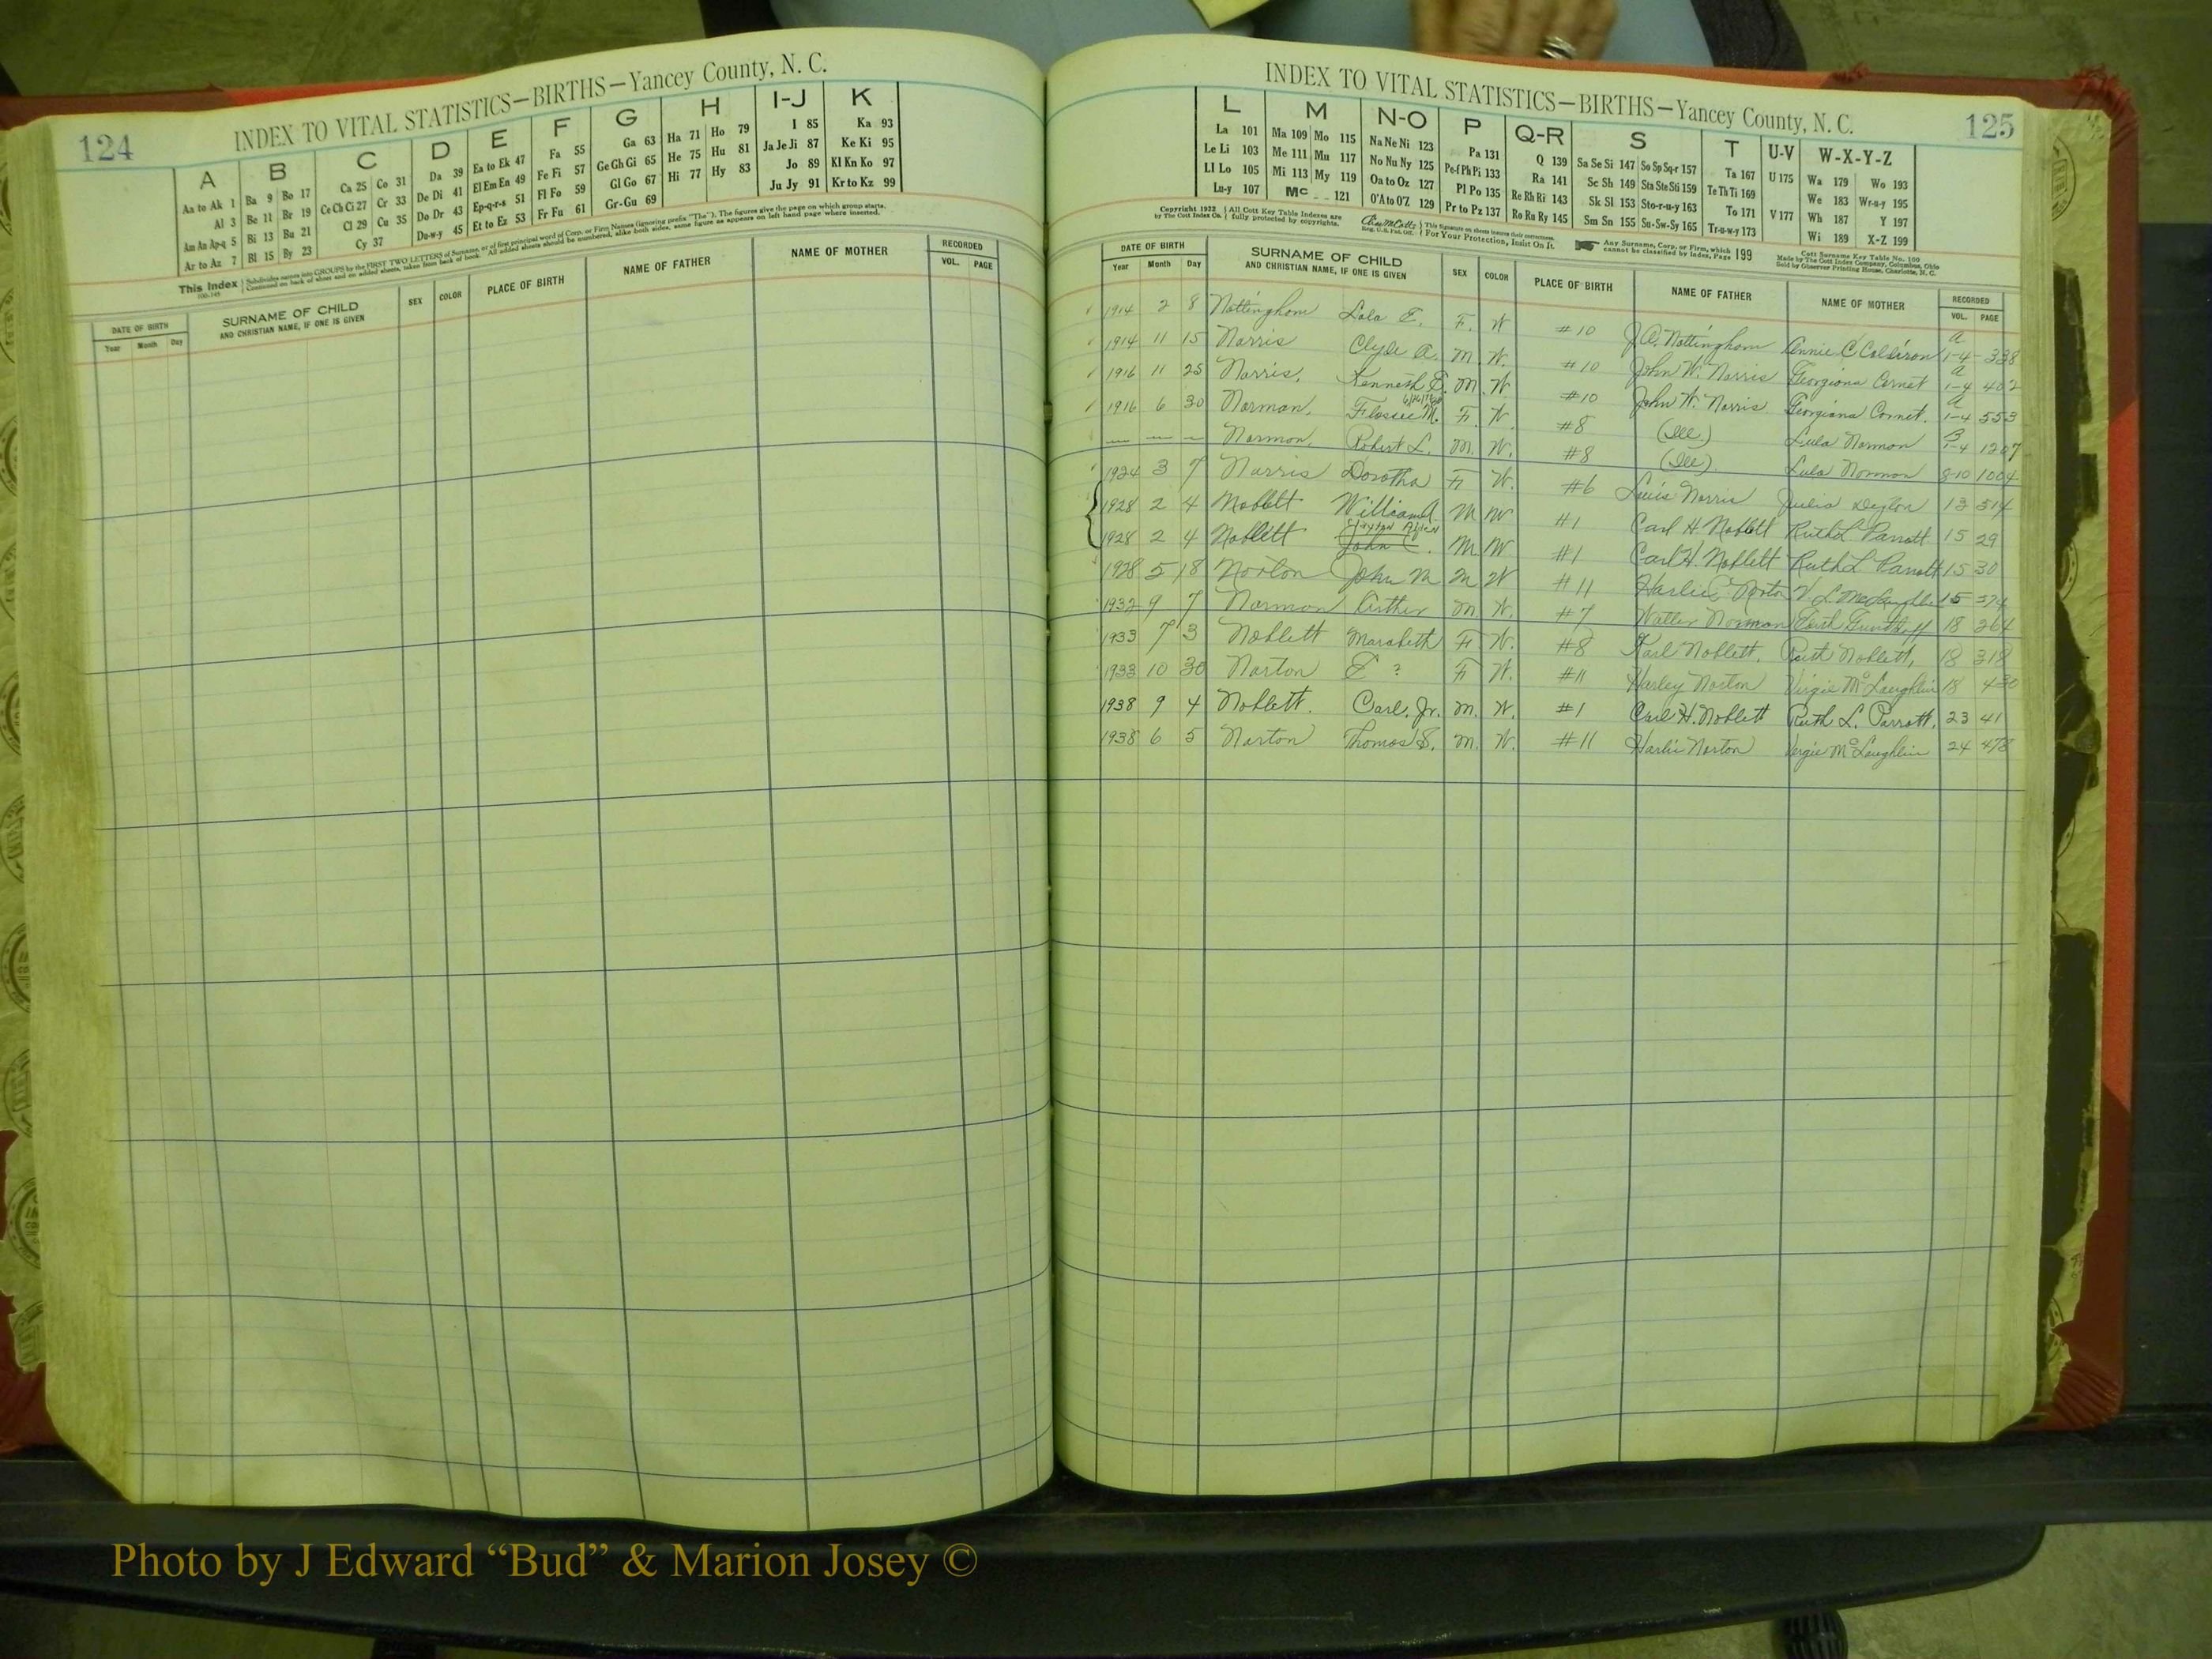 124
INDEX TO VITAL STATISTICS—BIRTHS—Yancey County, N. C.
A B C D E F G H I-J K
Aa to Ak 1 Ba 9 Bo 17 Ca 25 Co 31 Da 39 Ea to Ek 47 Fa 55 Ga 63 Ha 71 Ho 79 I 85 Ka 93
Al 3 Be 11 Br 19 Ce Ch Ci 27 Cr 33 De Di 41 El Em Ea 49 Fe Fi 57 Ge Gh Gi 65 He 75 Hu 81 Ja Je Ji 87 Ke Ki 95
Am An Ap-q 5 Bi 13 Bu 21 Cl 29 Cu 35 Do Dr 43 Ep-q-r-s 51 Fl Fo 59 Gl Go 67 Hi 77 Hy 83 Jo 89 Kl Kn Ko 97
Ar to Az 7 Bl 15 By 23 Cy 37 Du-w-y 45 Et to Ez 53 Fr Fu 61 Gr-Gu 69 Ju Jy 91 Kr to Kz 99
This Index Subdivides names into GROUPS by the FIRST TWO LETTERS of Surname, or of first principal word of Corp. or Firm Names (ignoring prefix "The"). The figures give the page on which group starts.
Continued on back of sheet and on added sheets, taken from back of book. All added sheets should be numbered, alike both sides, same figure as appears on left hand page where inserted.
DATE OF BIRTH SURNAME OF CHILD SEX COLOR PLACE OF BIRTH NAME OF FATHER NAME OF MOTHER RECORDED
Year Month Day AND CHRISTIAN NAME, IF ONE IS GIVEN VOL. PAGE
INDEX TO VITAL STATISTICS—BIRTHS—Yancey County, N. C.
125
L M N-O P Q-R S T U-V W-X-Y-Z
La 101 Ma 109 Mo 115 Na Ne Ni 123 Pa 131 Q 139 Sa Se Si 147 So Sp Sq-r 157 Ta 167 U 175 Wa 179 Wo 193
Le Li 103 Me 111 Mu 117 No Nu Ny 125 Pe-f Ph Pi 133 Ra 141 Sc Sh 149 Sta Ste Sti 159 Te Th Ti 169 We 183 Wr-u-y 195
Ll Lo 105 Mi 113 My 119 Oa to Oz 127 Pl Po 135 Re Rh Ri 143 Sk Sl 153 Sto-r-u-y 163 To 171 V 177 Wh 187 Y 197
Lu-y 107 Mc 121 O'A to O'Z 129 Pr to Pz 137 Ro Ru Ry 145 Sm Sn 155 Su-Sw-Sy 165 Tr-u-w-y 173 Wi 189 X-Z 199
Copyright 1932 by The Cott Index Co. All Cott Key Table Indexes are fully protected by copyrights. Reg. U.S. Pat. Off. This Signature on sheets insures their correctness. For Your Protection, Insist On It.
Any Surname, Corp. or Firm, which cannot be classified by Index, Page 199
Cott Surname Key Table No. 100
Made by The Cott Index Company, Columbus, Ohio
Sold by Observer Printing House, Charlotte, N. C.
DATE OF BIRTH SURNAME OF CHILD SEX COLOR PLACE OF BIRTH NAME OF FATHER NAME OF MOTHER RECORDED
Year Month Day AND CHRISTIAN NAME, IF ONE IS GIVEN VOL. PAGE
1914 2 8 Nottingham Lola E. F. W #10 J.A. Nottingham Annie C Coldiron a 1-4 338
1914 11 15 Norris Clyde A. M. W. #10 John W. Norris Georgiana Cornet a 1-4 402
1916 11 25 Norris, Kenneth E. M. W. #10 John W. Norris Georgiana Cornet. a 1-4 553
1916 6 30 Norman, Flossie M. F. W. #8 (Ill.) Lula Norman B 1-4 1207
— — — Norman, Robert L. M. W. #8 (Ill) Lula Norman 8-10 1004
1924 3 7 Norris Dorotha F W. #6 Luis Norris Julia Deyton 13 514
1928 2 4 Noblett William A. M W #1 Carl H. Noblett Ruth L Parrott 15 29
1928 2 4 Noblett Clayton Allen John C. M W #1 Carl H. Noblett Ruth L Parrott 15 30
1928 5 18 Norton John M M W #11 Harlie Norton V. L. McLaughlin 15 574
1932 9 7 Norman Arther M W. #7 Walter Norman 18 264
1933 7 3 Noblett Marabeth F. W. #8 Karl Noblett, Ruth Noblett, 18 318
1933 10 30 Norton E ? F W. #11 Harley Norton Virgie McLaughlin 18 430
1938 9 4 Noblett. Carl, Jr. M. W. #1 Carl H. Noblett Ruth L. Parrott, 23 41
1938 6 5 Norton Thomas S. M. W. #11 Harlie Norton Vergie McLaughlin 24 478
Photo by J Edward “Bud” & Marion Josey ©